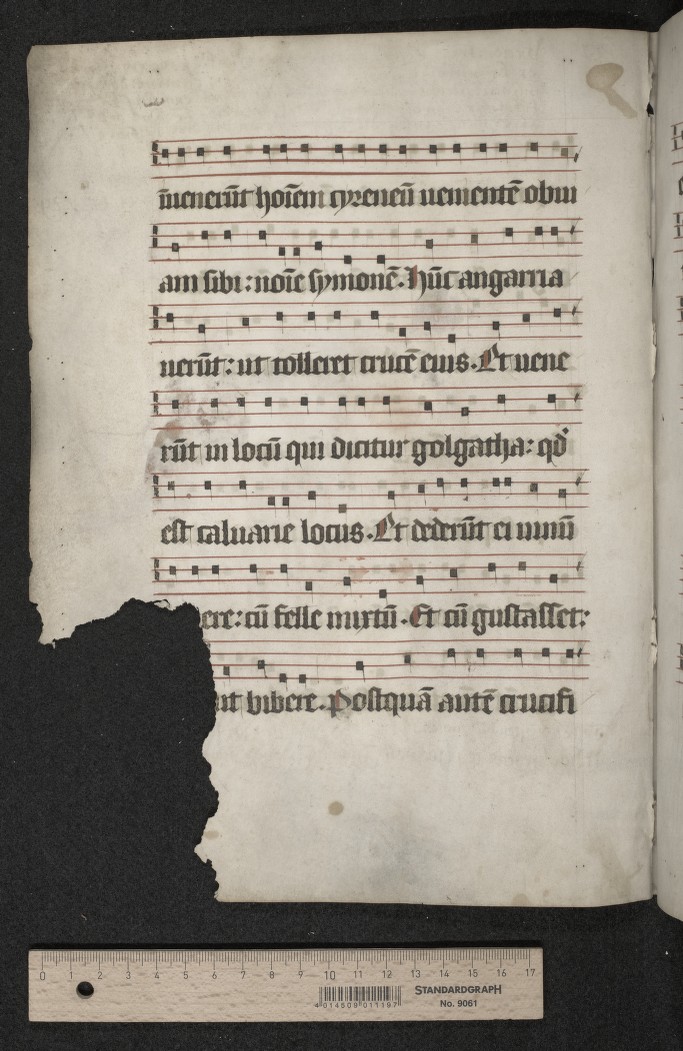 inuenerūt hoīem cyreneū uenientē obui
am sibi : noīe symonē . Hūc angarria
uerūt : ut tolleret crucē eius . Et uene
rūt in locū qui dicitur golgatha : qd̓
est caluarie locus . Et dederūt ei uinū
ere : cū felle mixtū . Et cū gustasset :
ut bibere . Postquā autē crucifi
0 1 2 3 4 5 6 7 8 9 10 11 12 13 14 15 16 17
4 014509 011197
STANDARDGRAPH
No. 9061